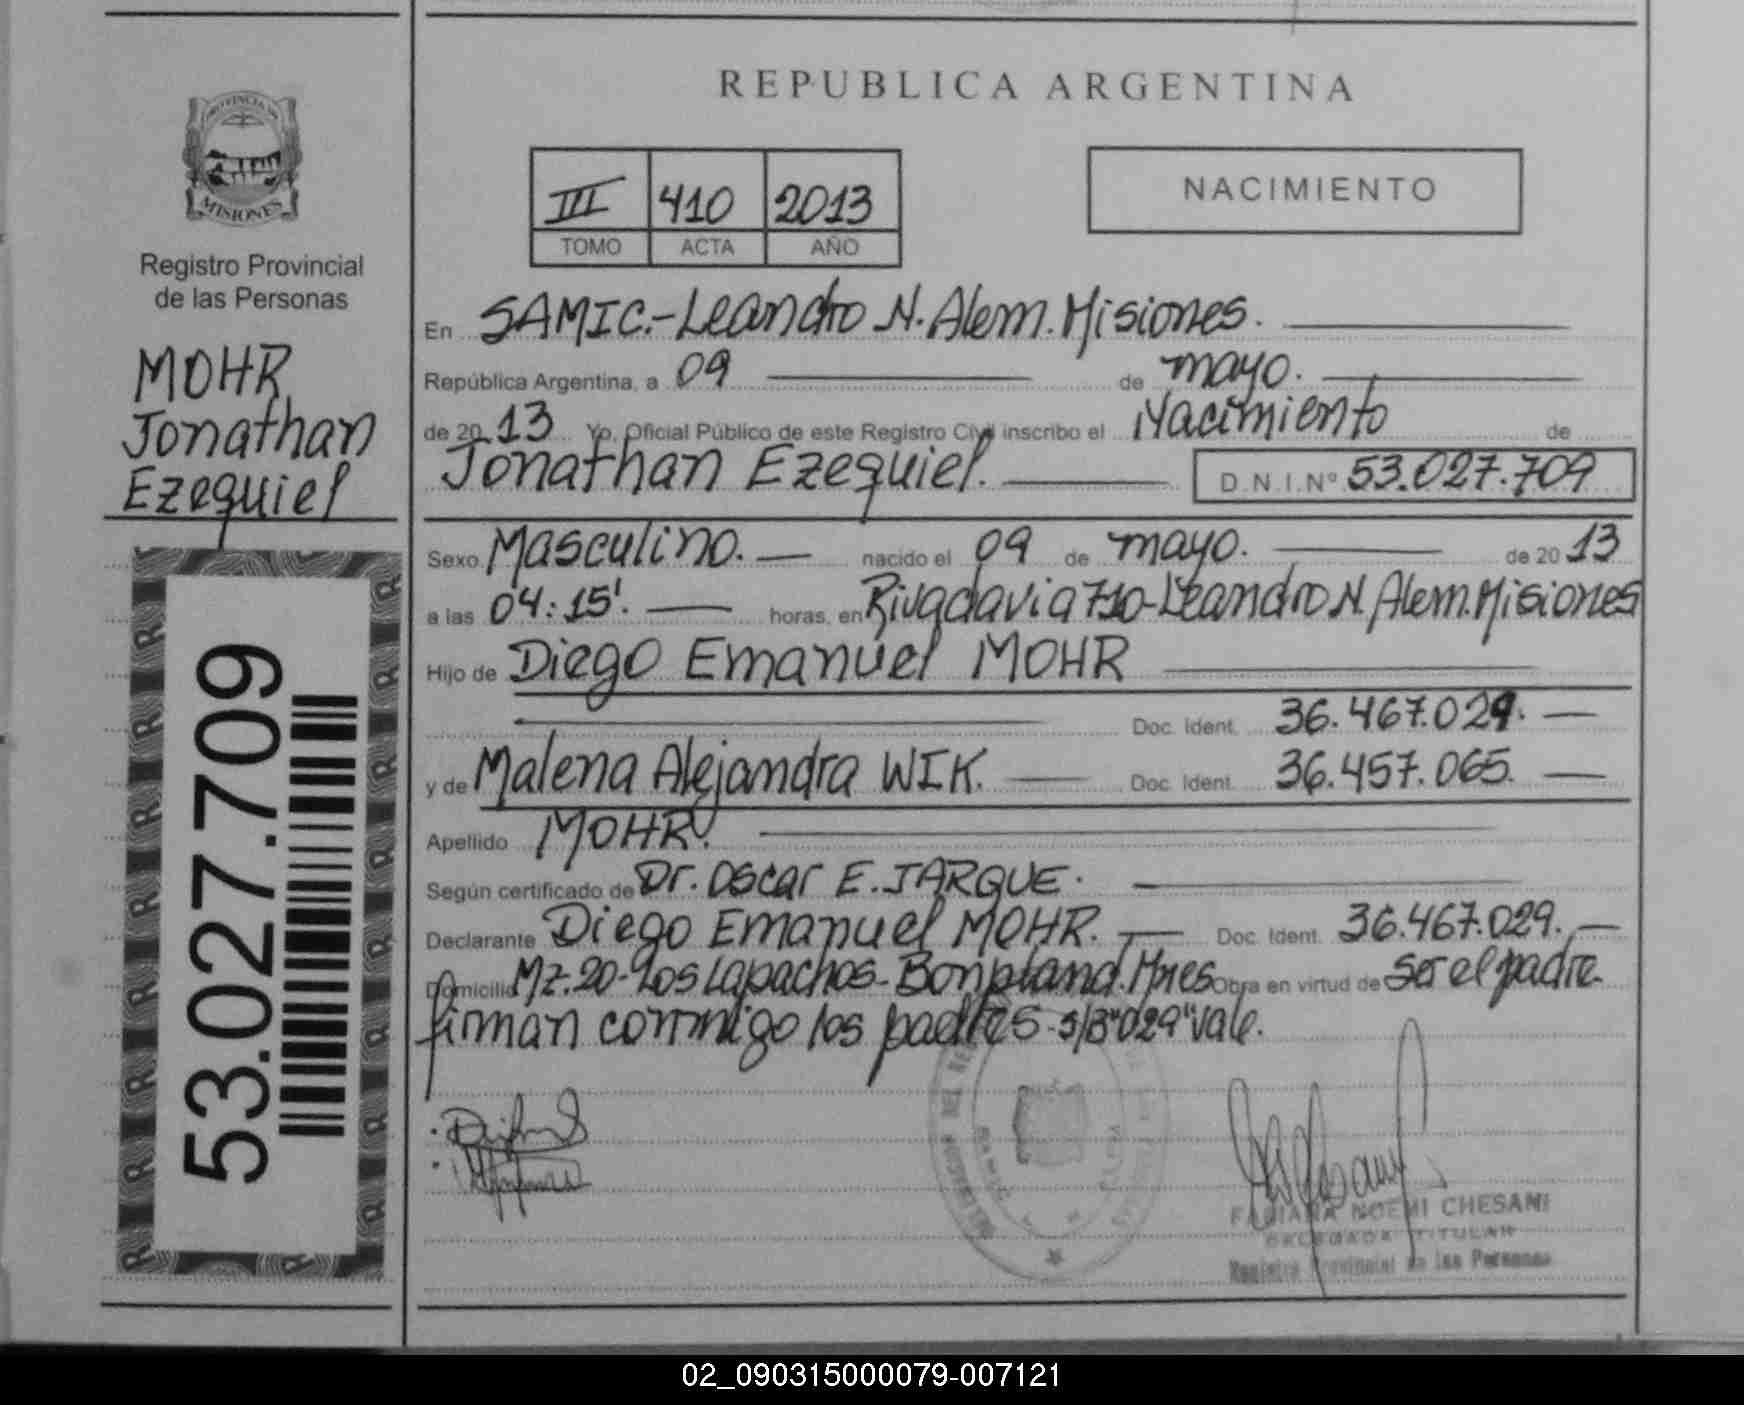 PROVINCIA DE
MISIONES
Registro Provincial
de las Personas
MOHR
Jonathan
Ezequiel
53.027.709
REPUBLICA ARGENTINA
III 410 2013
TOMO ACTA AÑO
NACIMIENTO
En SAMIC.-Leandro N. Alem. Misiones.
República Argentina, a 09 de mayo.
de 20 13 Yo, Oficial Público de este Registro Civil inscribo el Nacimiento de
Jonathan Ezequiel. D.N.I.Nº 53.027.709
Sexo Masculino. nacido el 09 de mayo. de 20 13
a las 04:15'. horas, en Rivadavia 710-Leandro N. Alem. Misiones
Hijo de Diego Emanuel MOHR
Doc. Ident. 36.467.029.
y de Malena Alejandra WIK. Doc. Ident. 36.457.065.
Apellido MOHR.
Según certificado de Dr. Oscar E. JARQUE.
Declarante Diego Emanuel MOHR. Doc. Ident. 36.467.029.
Domicilio Mz.20-Los Lapachos-Bonpland. Mnes Obra en virtud de ser el padre.
firman conmigo los padres-s/B"029"vale.
FABIANA NOEMI CHESANI
DELEGADA TITULAR
Registro Provincial de las Personas
02_090315000079-007121